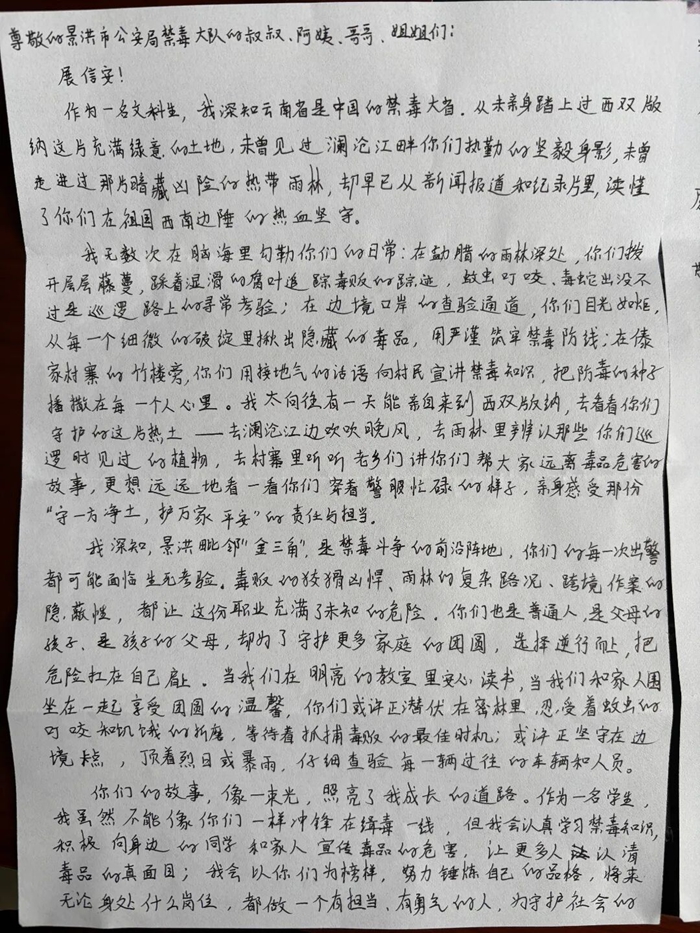 尊敬的景洪市公安局禁毒大队的叔叔、阿姨、哥哥、姐姐们：
展信安！
作为一名文科生，我深知云南省是中国的禁毒大省。从未亲身踏上过西双版
纳这片充满绿意的土地，未曾见过澜沧江畔你们执勤的坚毅身影，未曾
走进过那片暗藏凶险的热带雨林，却早已从新闻报道和纪录片里，读懂
了你们在祖国西南边陲的热血坚守。
我无数次在脑海里勾勒你们的日常：在勐腊的雨林深处，你们拨
开层层藤蔓，踩着湿滑的腐叶追踪毒贩的踪迹，蚊虫叮咬、毒蛇出没不
过是巡逻路上的寻常考验；在边境口岸的查验通道，你们目光如炬，
从每一个细微的破绽里揪出隐藏的毒品，用严谨筑牢禁毒防线；在傣
家村寨的竹楼旁，你们用接地气的话语向村民宣讲禁毒知识，把防毒的种子
播撒在每一个人心里。我太向往有一天能亲自来到西双版纳，去看看你们
守护的这片热土——去澜沧江边吹吹晚风，去雨林里辨认那些你们巡
逻时见过的植物，去村寨里听听老乡们讲你们帮大家远离毒品危害的
故事，更想远远地看一看你们穿着警服忙碌的样子，亲身感受那份
“守一方净土，护万家平安”的责任与担当。
我深知，景洪毗邻“金三角”，是禁毒斗争的前沿阵地，你们的每一次出警
都可能面临生死考验。毒贩的狡猾凶悍、雨林的复杂路况、跨境作案的
隐蔽性，都让这份职业充满了未知的危险。你们也是普通人，是父母的
孩子、是孩子的父母，却为了守护更多家庭的团圆，选择逆行而上，把
危险扛在自己肩上。当我们在明亮的教室里安心读书，当我们和家人围
坐在一起享受团圆的温馨，你们或许正潜伏在密林里，忍受着蚊虫的
叮咬和饥饿的折磨，等待着抓捕毒贩的最佳时机；或许正坚守在边
境卡点，顶着烈日或暴雨，仔细查验每一辆过往的车辆和人员。
你们的故事，像一束光，照亮了我成长的道路。作为一名学生，
我虽然不能像你们一样冲锋在缉毒一线，但我会认真学习禁毒知识，
积极向身边的同学和家人宣传毒品的危害，让更多人认清
毒品的真面目；我会以你们为榜样，努力锤炼自己的品格，将来
无论身处什么岗位，都做一个有担当、有勇气的人，为守护社会的